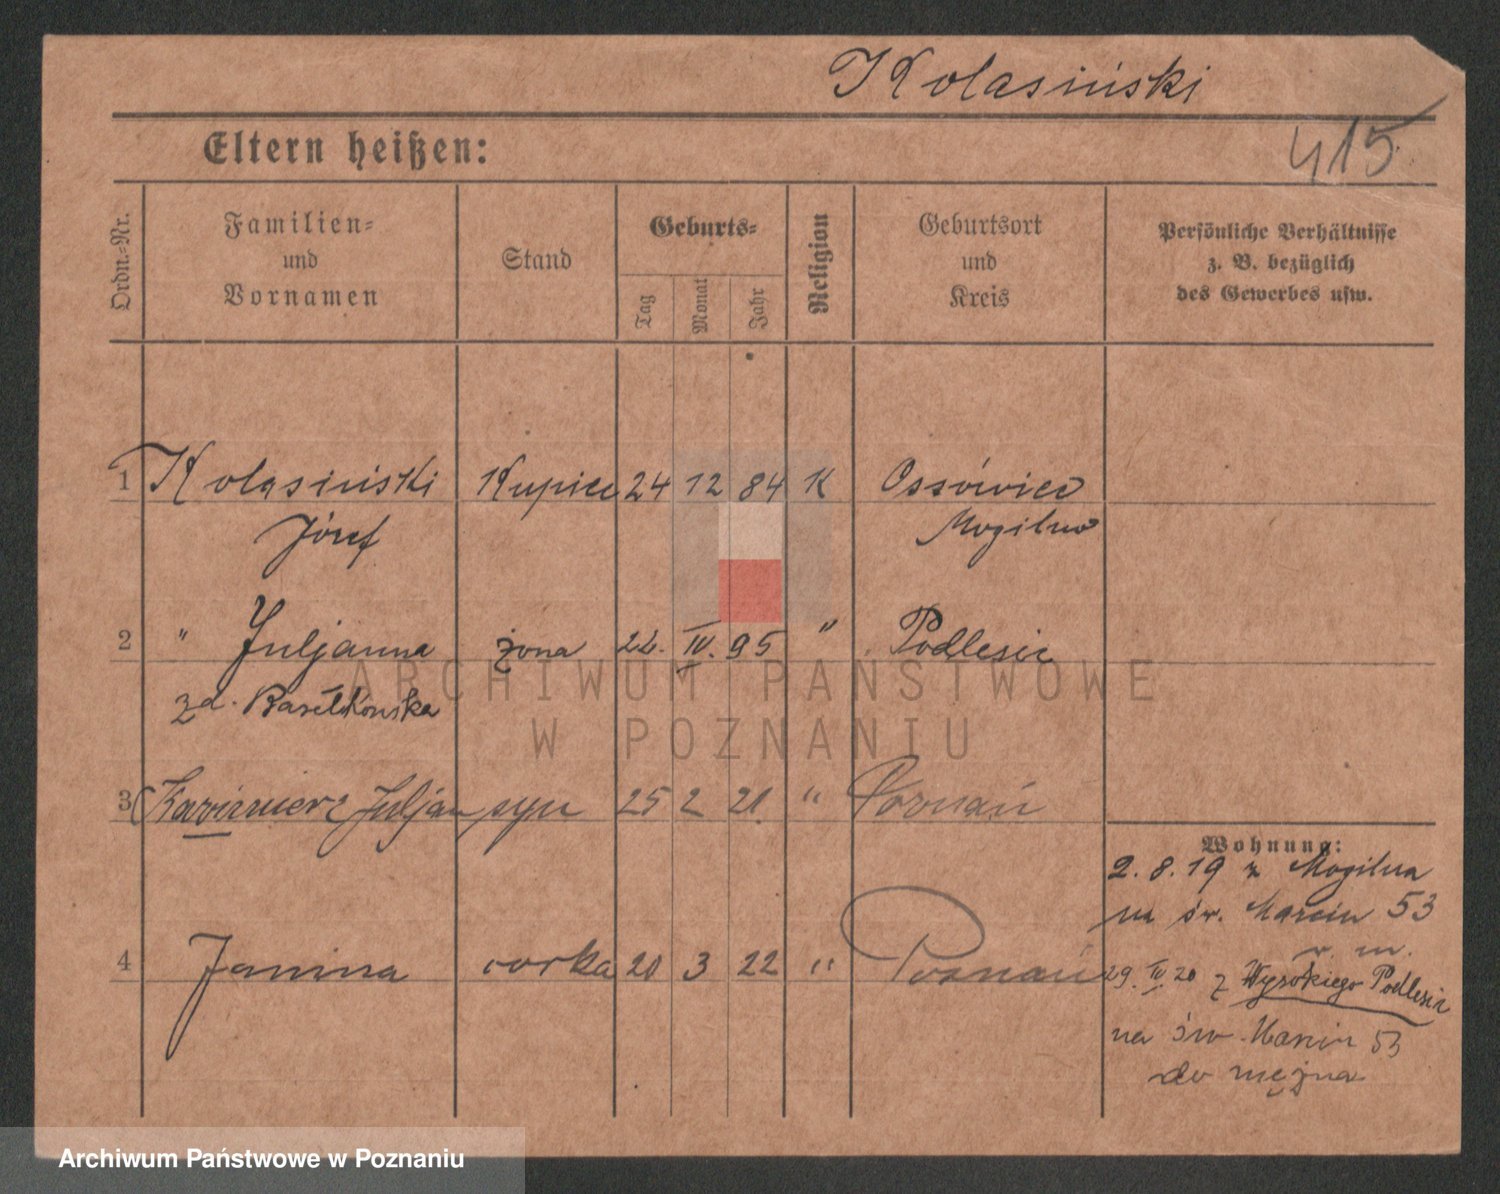 Kolasiński
415
Eltern heißen:
Ordn.-Nr.
Familien- und Vornamen
Stand
Geburts-
Tag
Monat
Jahr
Religion
Geburtsort und Kreis
Persönliche Verhältnisse
z. B. bezüglich
des Gewerbes usw.
1 Kolasiński Kupiec 24 12 84 K Ossówiec
Józef Mogilno
2 " Juljanna żona 22. IV. 95 " Podlesie
zd.
3 Kazimierz Juljan syn 25 2 21 " Poznań
Wohnung:
2. 8. 19 z Mogilna
na św. Marcin 53
4 Janina corka 20 3 22 " Poznań
29. IV 20 z Wysokiego Podlesia
na św. Marcin 53
do męża
ARCHIWUM PAŃSTWOWE
W POZNANIU
Archiwum Państwowe w Poznaniu